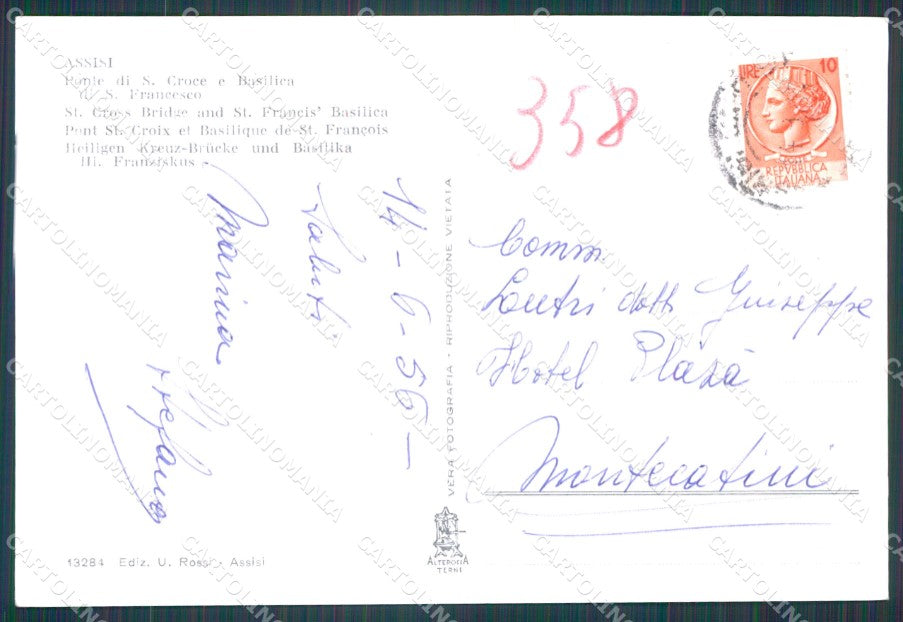 ASSISI
Ponte di S. Croce e Basilica
di S. Francesco
St. Cross Bridge and St. Francis' Basilica
Pont St. Croix et Basilique de St. François
Heiligen Kreuz-Brücke und Basilika
Hl. Franziskus
358
LIRE 10
REPVBBLICA
ITALIANA
14-6-56-
Saluti
Marina
Stefano
VERA FOTOGRAFIA - RIPRODUZIONE VIETATA
Comm.
dott. Guiseppe
Hotel Plaza
Montecatini
13284 Ediz. U. Rossi - Assisi
ALTEROCCA
TERNI
CARTOLINOMANIA